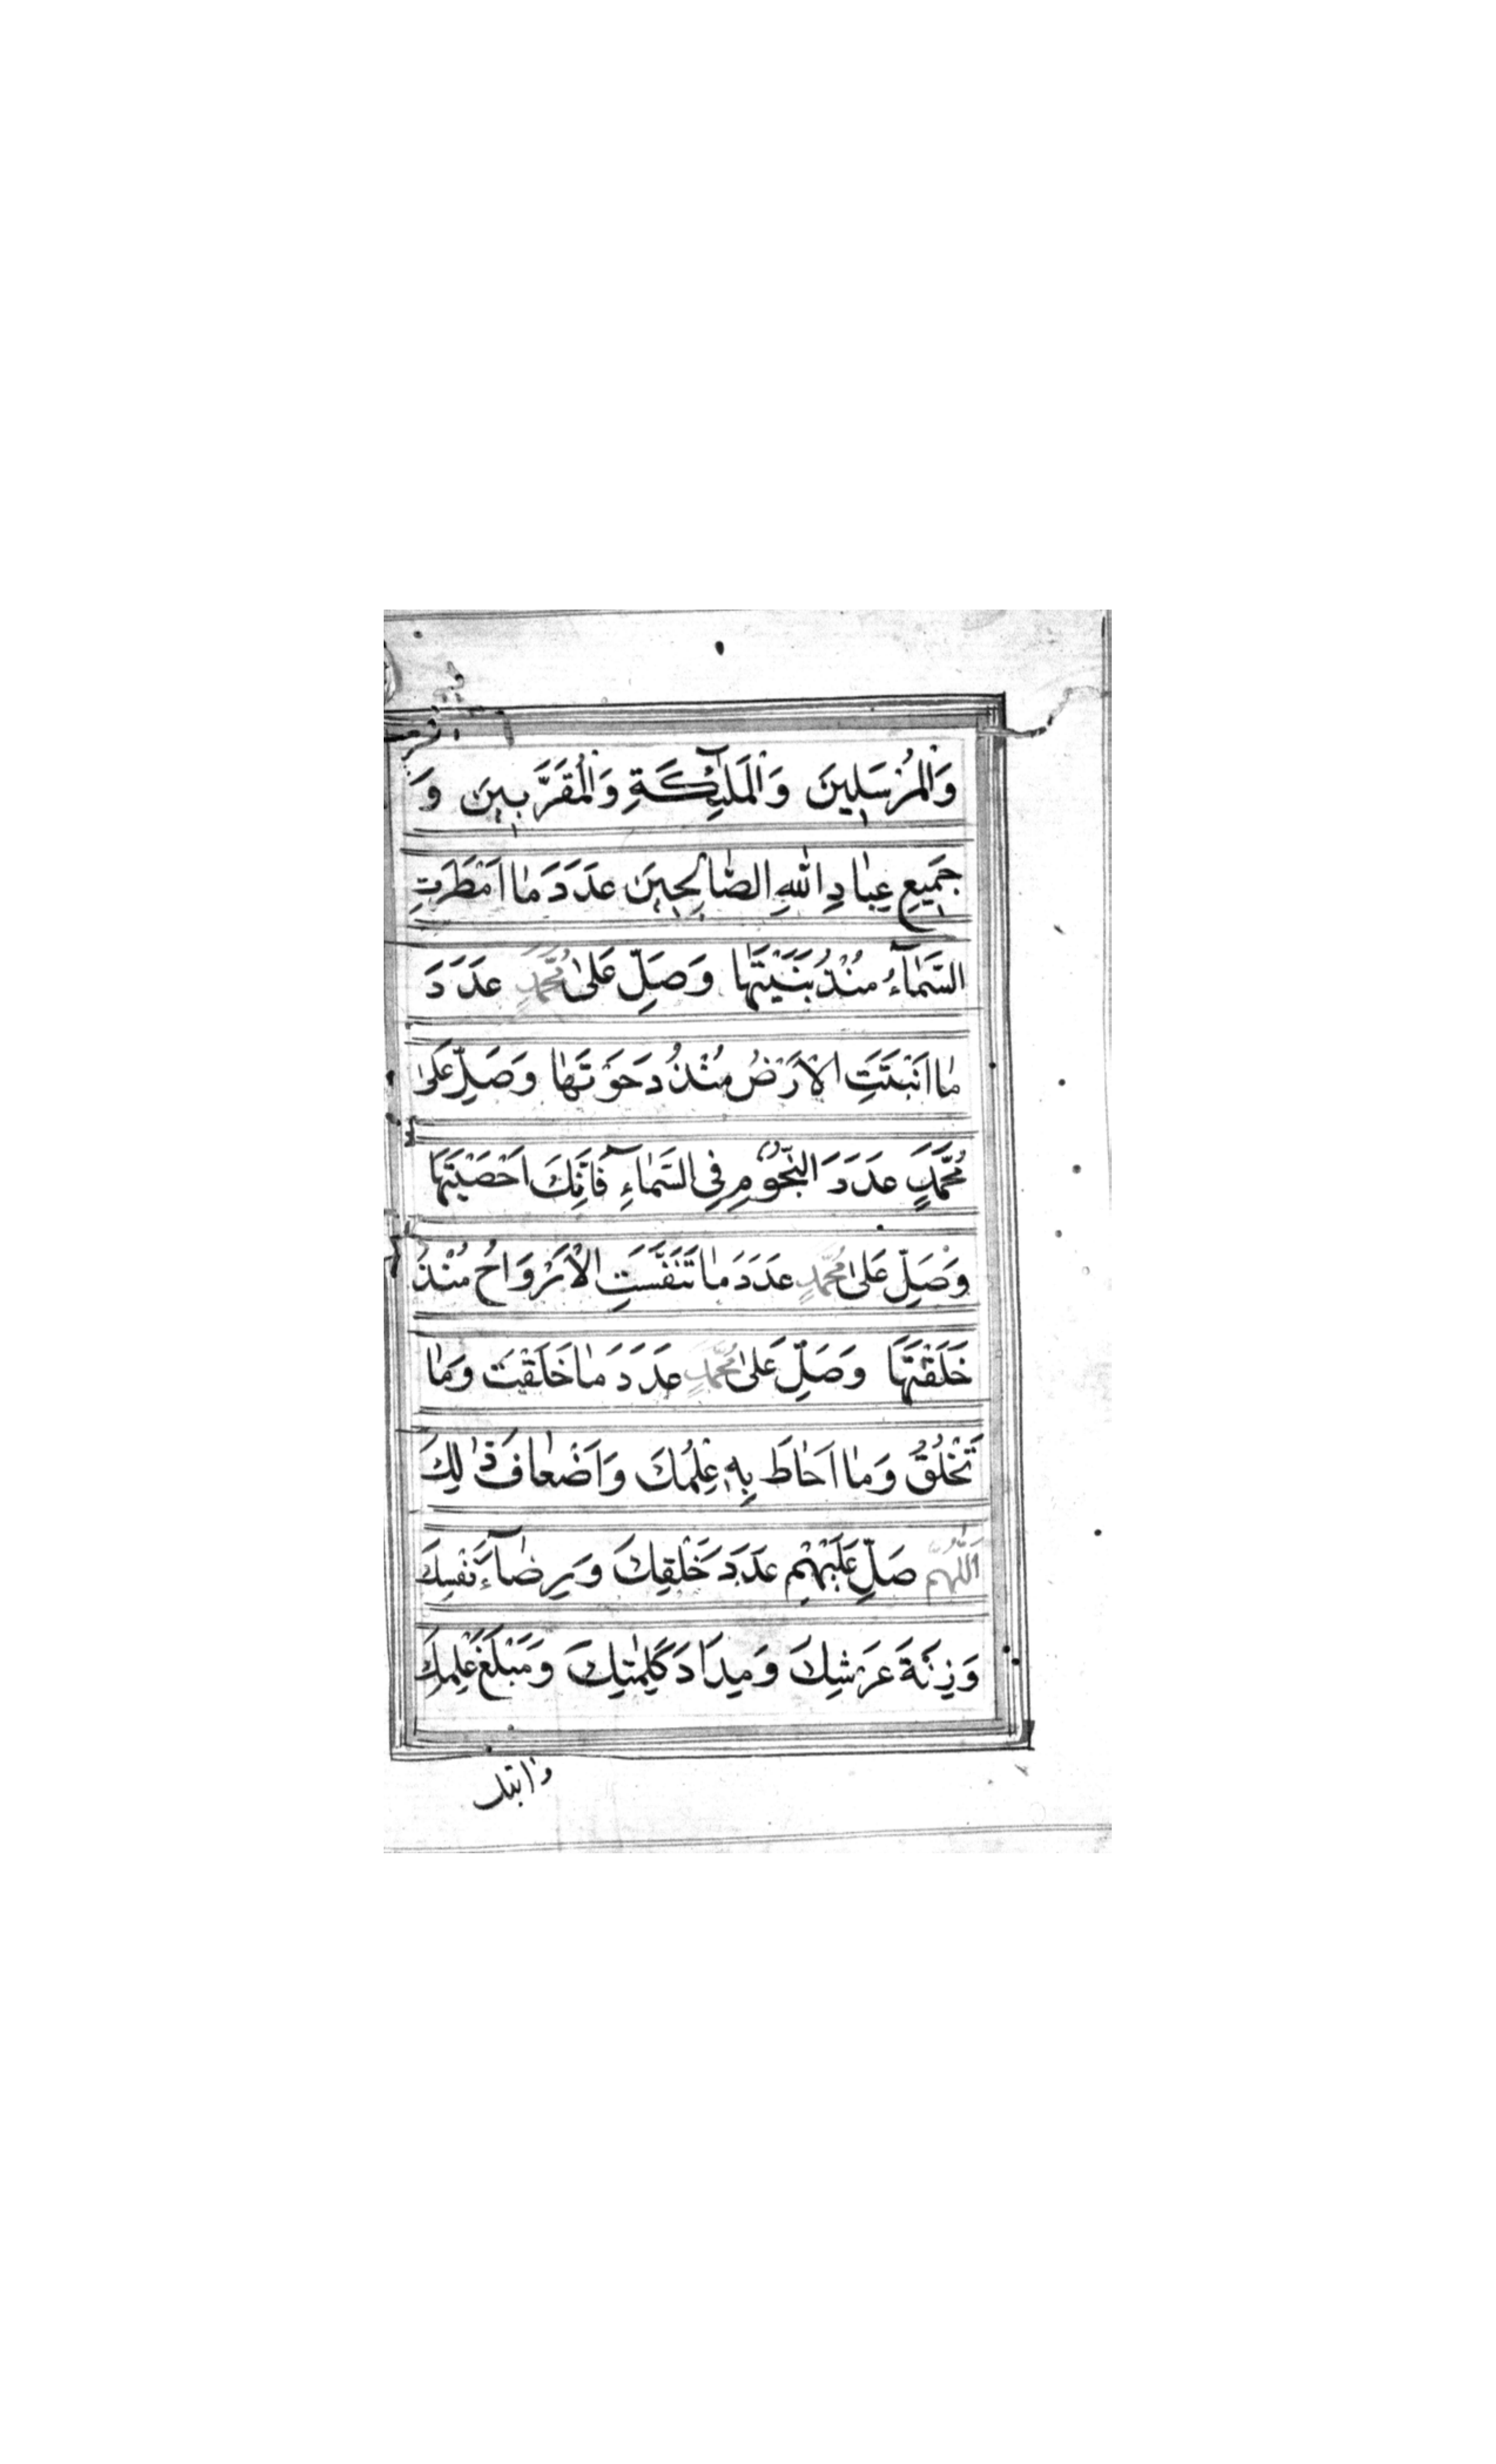 وَالْمُرْسَلِينَ وَالْمَلٰٓئِكَةِ وَالْمُقَرَّبِينَ وَ
جَمِيعِ عِبَادِ اللّٰهِ الصَّالِحِينَ عَدَدَ مَا اَمْطَرَتِ
السَّمَآءُ مُنْذُ بَنَيْتَهَا وَصَلِّ عَلٰى مُحَمَّدٍ عَدَدَ
مَا اَنْبَتَتِ الْاَرْضُ مُنْذُ دَحَوْتَهَا وَصَلِّ عَلٰى
مُحَمَّدٍ عَدَدَ النُّجُوْمِ فِي السَّمَآءِ فَاِنَّكَ اَحْصَيْتَهَا
وَصَلِّ عَلٰى مُحَمَّدٍ عَدَدَ مَا تَنَفَّسَتِ الْاَرْوَاحُ مُنْذُ
خَلَقْتَهَا وَصَلِّ عَلٰى مُحَمَّدٍ عَدَدَ مَا خَلَقْتَ وَمَا
تَخْلُقُ وَمَا اَحَاطَ بِهٖ عِلْمُكَ وَاَضْعَافَ ذٰلِكَ
اَللّٰهُمَّ صَلِّ عَلَيْهِمْ عَدَدَ خَلْقِكَ وَرِضَآءَ نَفْسِكَ
وَزِنَةَ عَرْشِكَ وَمِدَادَ كَلِمٰتِكَ وَمَبْلَغَ عِلْمِكَ